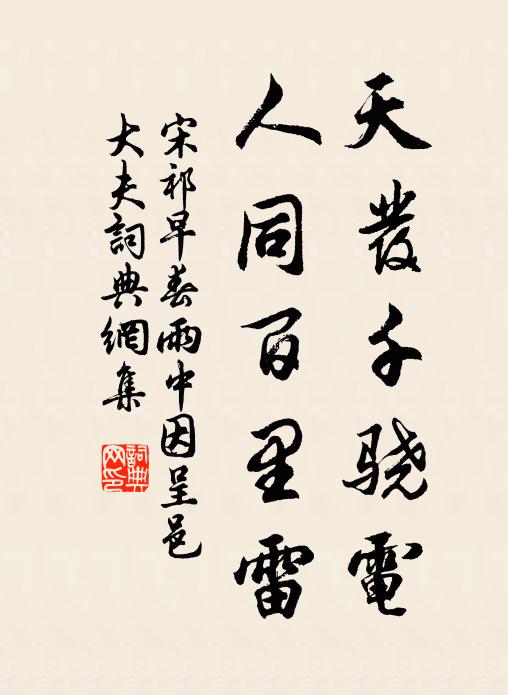 天發千骁電
人同百里雷
宋祁早春雨中因呈邑
大夫詞典網集
詞典
网印